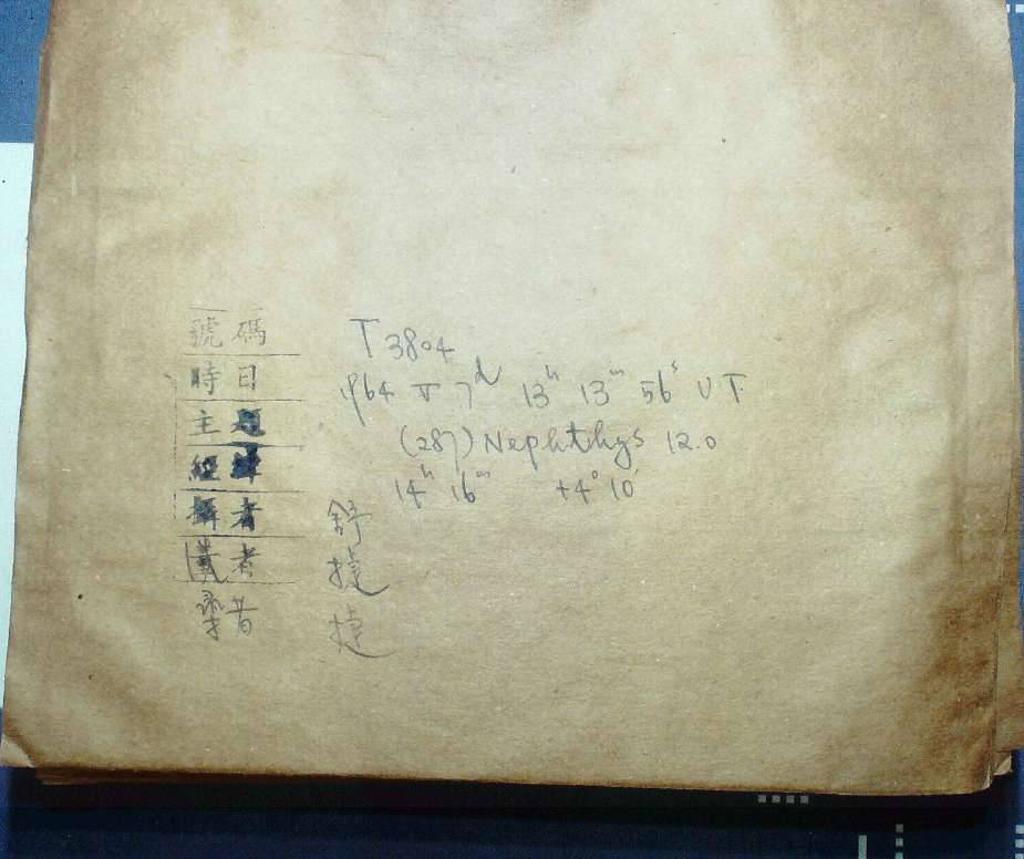 號碼 T 3804
時日 1964 V 7d 13h 13m 56s UT
主題 (287) Nephthys 12.0
經緯 14h 16m +4° 10'
攝者 舒
者 撻
者 撻